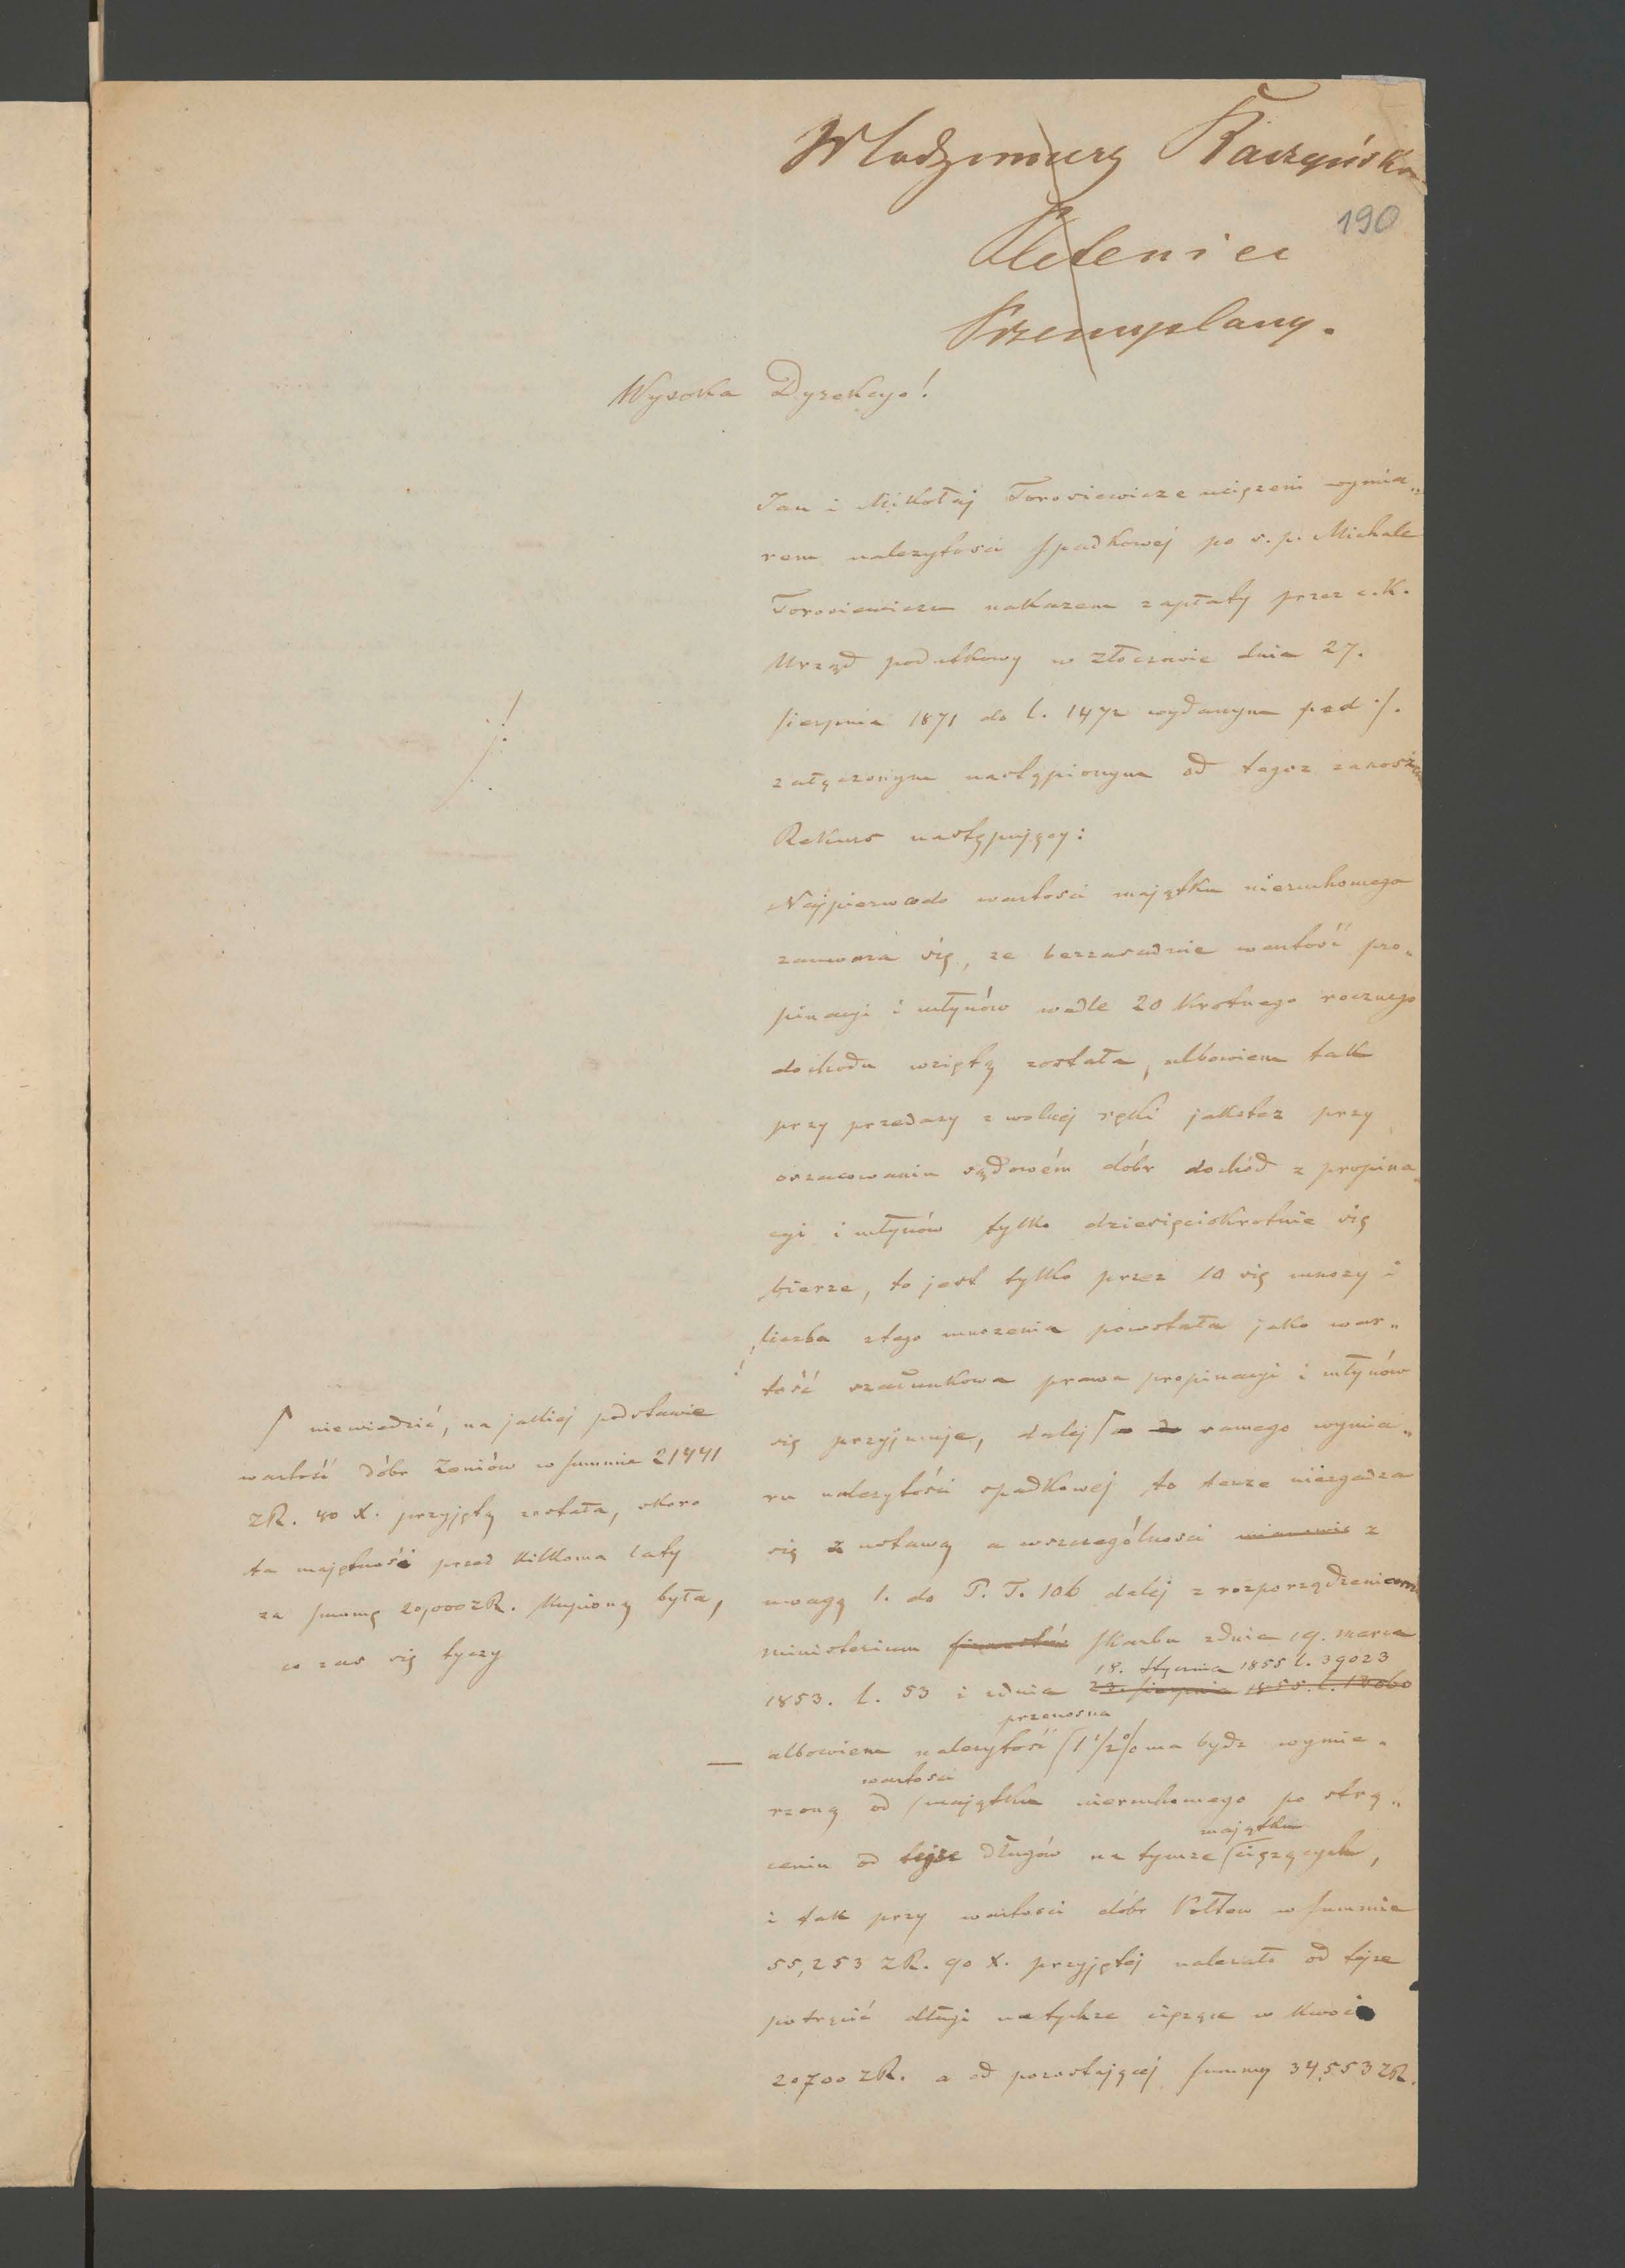 Włodzimierz Raczyński
190
Pleteniec
Przemyślany.
Wysoka Dyrekcyo!
Jan i Mikołaj Torosiewicze uciążeni wymia„
rem należytości spadkowej po ś. p. Michale
Torosiewiczu nakazem zapłaty przez c. k.
Urząd podatkowy w Złoczowie dnia 27.
sierpnia 1871 do l. 1472 wydanym pod ·/.
załączonym nastąpionym od tegoz zanoszą
Rekurs następujący:
Najpierw codo wartości majątku nieruchomego
zauważa się, ze bezzasadnie wartość pro„
pinacyi i młynów wedle 20 krotnego rocznego
dochodu wziętą została, albowiem tak
przy przedazy z wolnej ręki jakotez przy
oszacowaniu sądowém dóbr dochód z propina„
cyi i młynów tylko dziesięciokrotnie się
bierze, to jest tylko przez 10 się mnozy i
liczba ztego mnozenia powstała jako war„
tość szacunkowa prawa propinacyi i młynów
się przyjmuje, dalej samego wymia„
ru należytości spadkowej to tenze niezgadza
się z ustawą a wszczególnosci mianowic z
uwagą 1. do P. T. 106 dalej z rozporządzeniem
ministerium finansów skarbu zdnia 19. marca
18. stycznia 1855 l. 39023
1853. l. 53 i zdnia 23. sierpnia 1855. l.
przenosna
albowiem nalezytość 1 1/2 % ma bydz wymie„
wartosci
rzoną od majątku nieruchomego po strą„
majątku
ceniu od tejze długów na tymze ciązących,
i tak przy wartosci dóbr Kołtow w summie
55,253 ZR. 90 x. przyjętej nalezało od tejze
potrącić długi na tychze ciązące w kwocie
20700 ZR. a od pozostającej summy 34,553 ZR.
niewiedzić, na jakiej podstawie
wartość dóbr Zeniów w summie 21441
ZR. 40 x. przyjętą została, skoro
ta majętność przed kilkoma laty
za summę 20,000 ZR. kupioną była,
co zas się tyczy